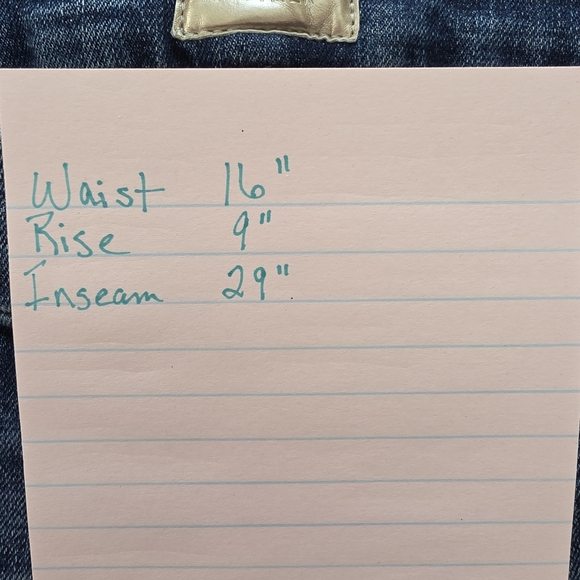 Waist 16"
Rise 9"
Inseam 29"